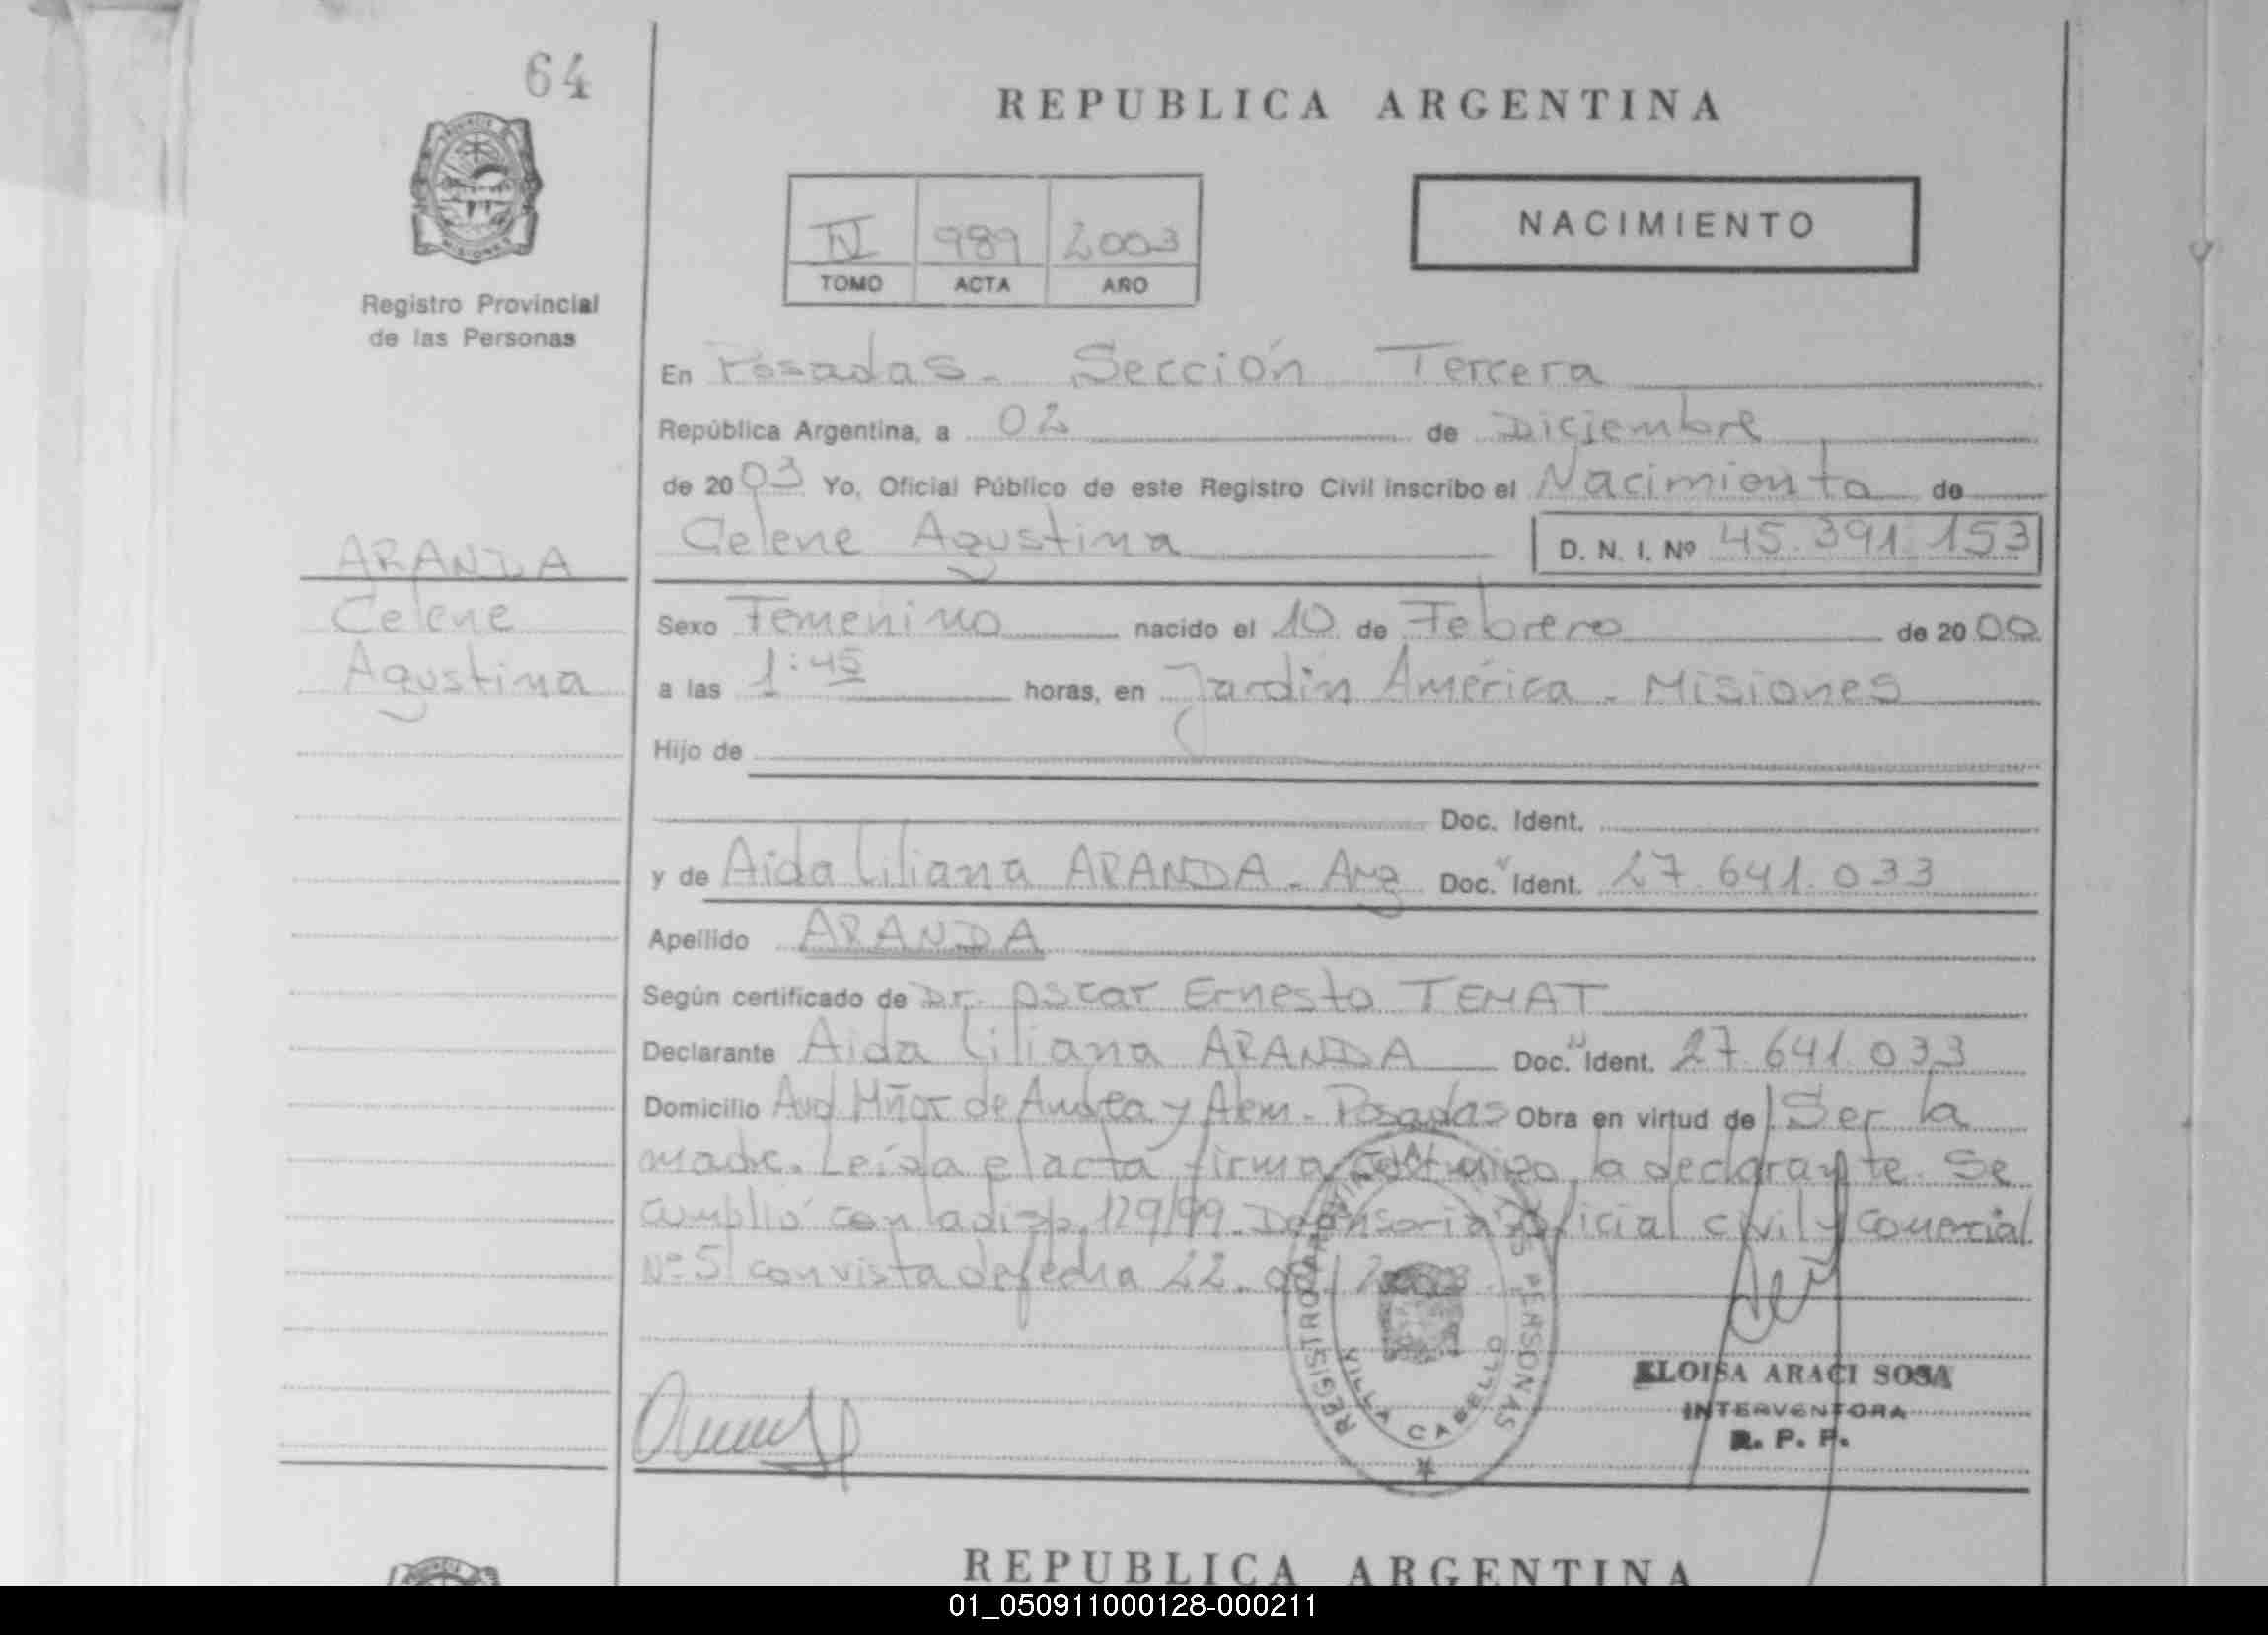 64
REPUBLICA ARGENTINA
PROVINCIA
MISIONES
Registro Provincial
de las Personas
IV 989 2003
TOMO ACTA AÑO
NACIMIENTO
En Posadas. Sección Tercera
República Argentina, a 02 de Diciembre
de 2003 Yo, Oficial Público de este Registro Civil inscribo el Nacimiento de
Celene Agustina D. N. I. Nº 45.391.153
ARANDA
Celene
Agustina
Sexo Femenino nacido el 10 de Febrero de 2000
a las 1:45 horas, en Jardín América - Misiones
Hijo de
Doc. Ident.
y de Aida Liliana ARANDA - Arg Doc. Ident. 27.641.033
Apellido ARANDA
Según certificado de Dr. Oscar Ernesto
Declarante Aida Liliana ARANDA Doc. Ident. 27.641.033
Domicilio Avd. Mñor de Andrea y Alem - Posadas Obra en virtud de Ser la
madre. Leída el acta firma conmigo la declarante. Se
cumplió con la disp. 129/99. Defensoría Oficial civil y Comercial
Nº 5 con vista de fecha 22
REGISTRO PROVINCIAL DE LAS PERSONAS
VILLA CABELLO
ELOISA ARACI SOSA
INTERVENTORA
R. P. P.
REPUBLICA ARGENTINA
01_050911000128-000211